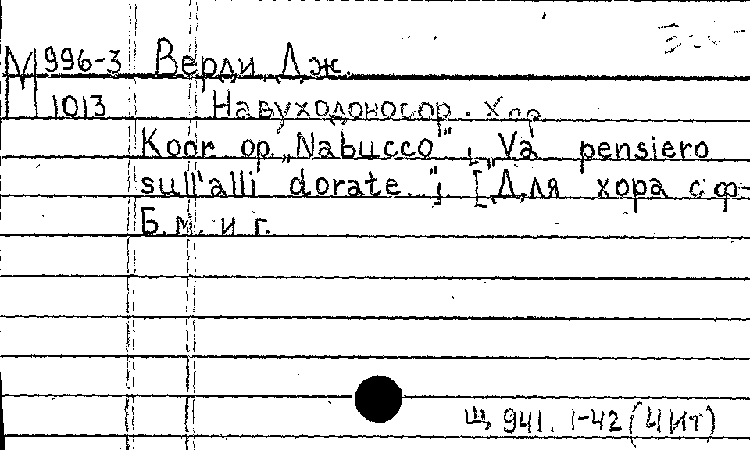 М 996-3 Верди, Дж.
1013 Навуходоносор. Хор
Коог. ор. „Nabucco“; [„Va pensiero
sull'alli dorate..."; [Для хора с ф-
Б.м. и г.
Щ 941.1-42 (4Ит)